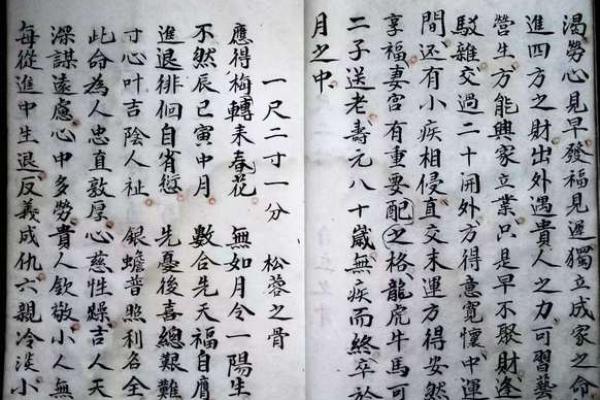 渴勞心見早發福見遲獨立成家之命
進四方之財出外遇貴人之力可習藝
營生方能興家立業只是早不聚財逢
駁雜交過二十開外方得意寬懷中運
間还有小疾相侵直交末運方得安然
享福妻宮有重要配之格龍虎牛馬可
二子送老壽元八十嵗無疾而終卒於
月之中
一尺二寸一分 松蓉之骨
應得梅轉耒春花 無如月令一陽生
不然辰巳寅中月 數合先天福自膺
進退徘徊自省愆 先憂後喜總艱難
寸心叶吉陰人祉 銀蟾普照利名全
此命為人忠直敦厚心慈性躁吉人天
深謀遠慮心中多勞貴人欽敬小人無
每從進中生退反義成仇六親冷淡小